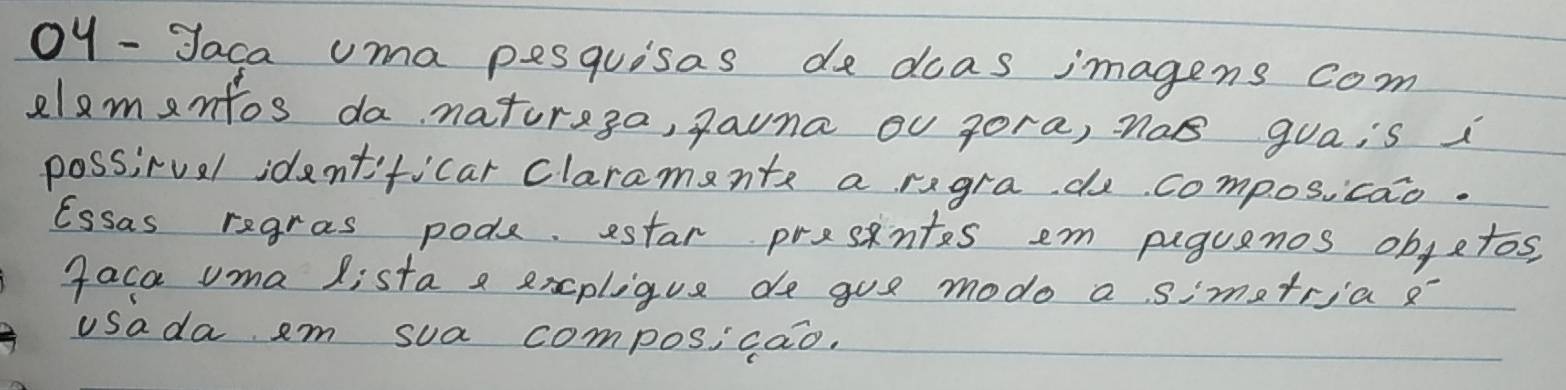 04 - Faça uma pesquisas de duas imagens com
elementos da natureza, fauna ou fora, nas quais i
possirvel identificar claramente a regra de composicão.
Essas regras pode. estar presentes em pequenos objetos,
faça uma lista e explique de que modo a simetria é
usada em sua composição.